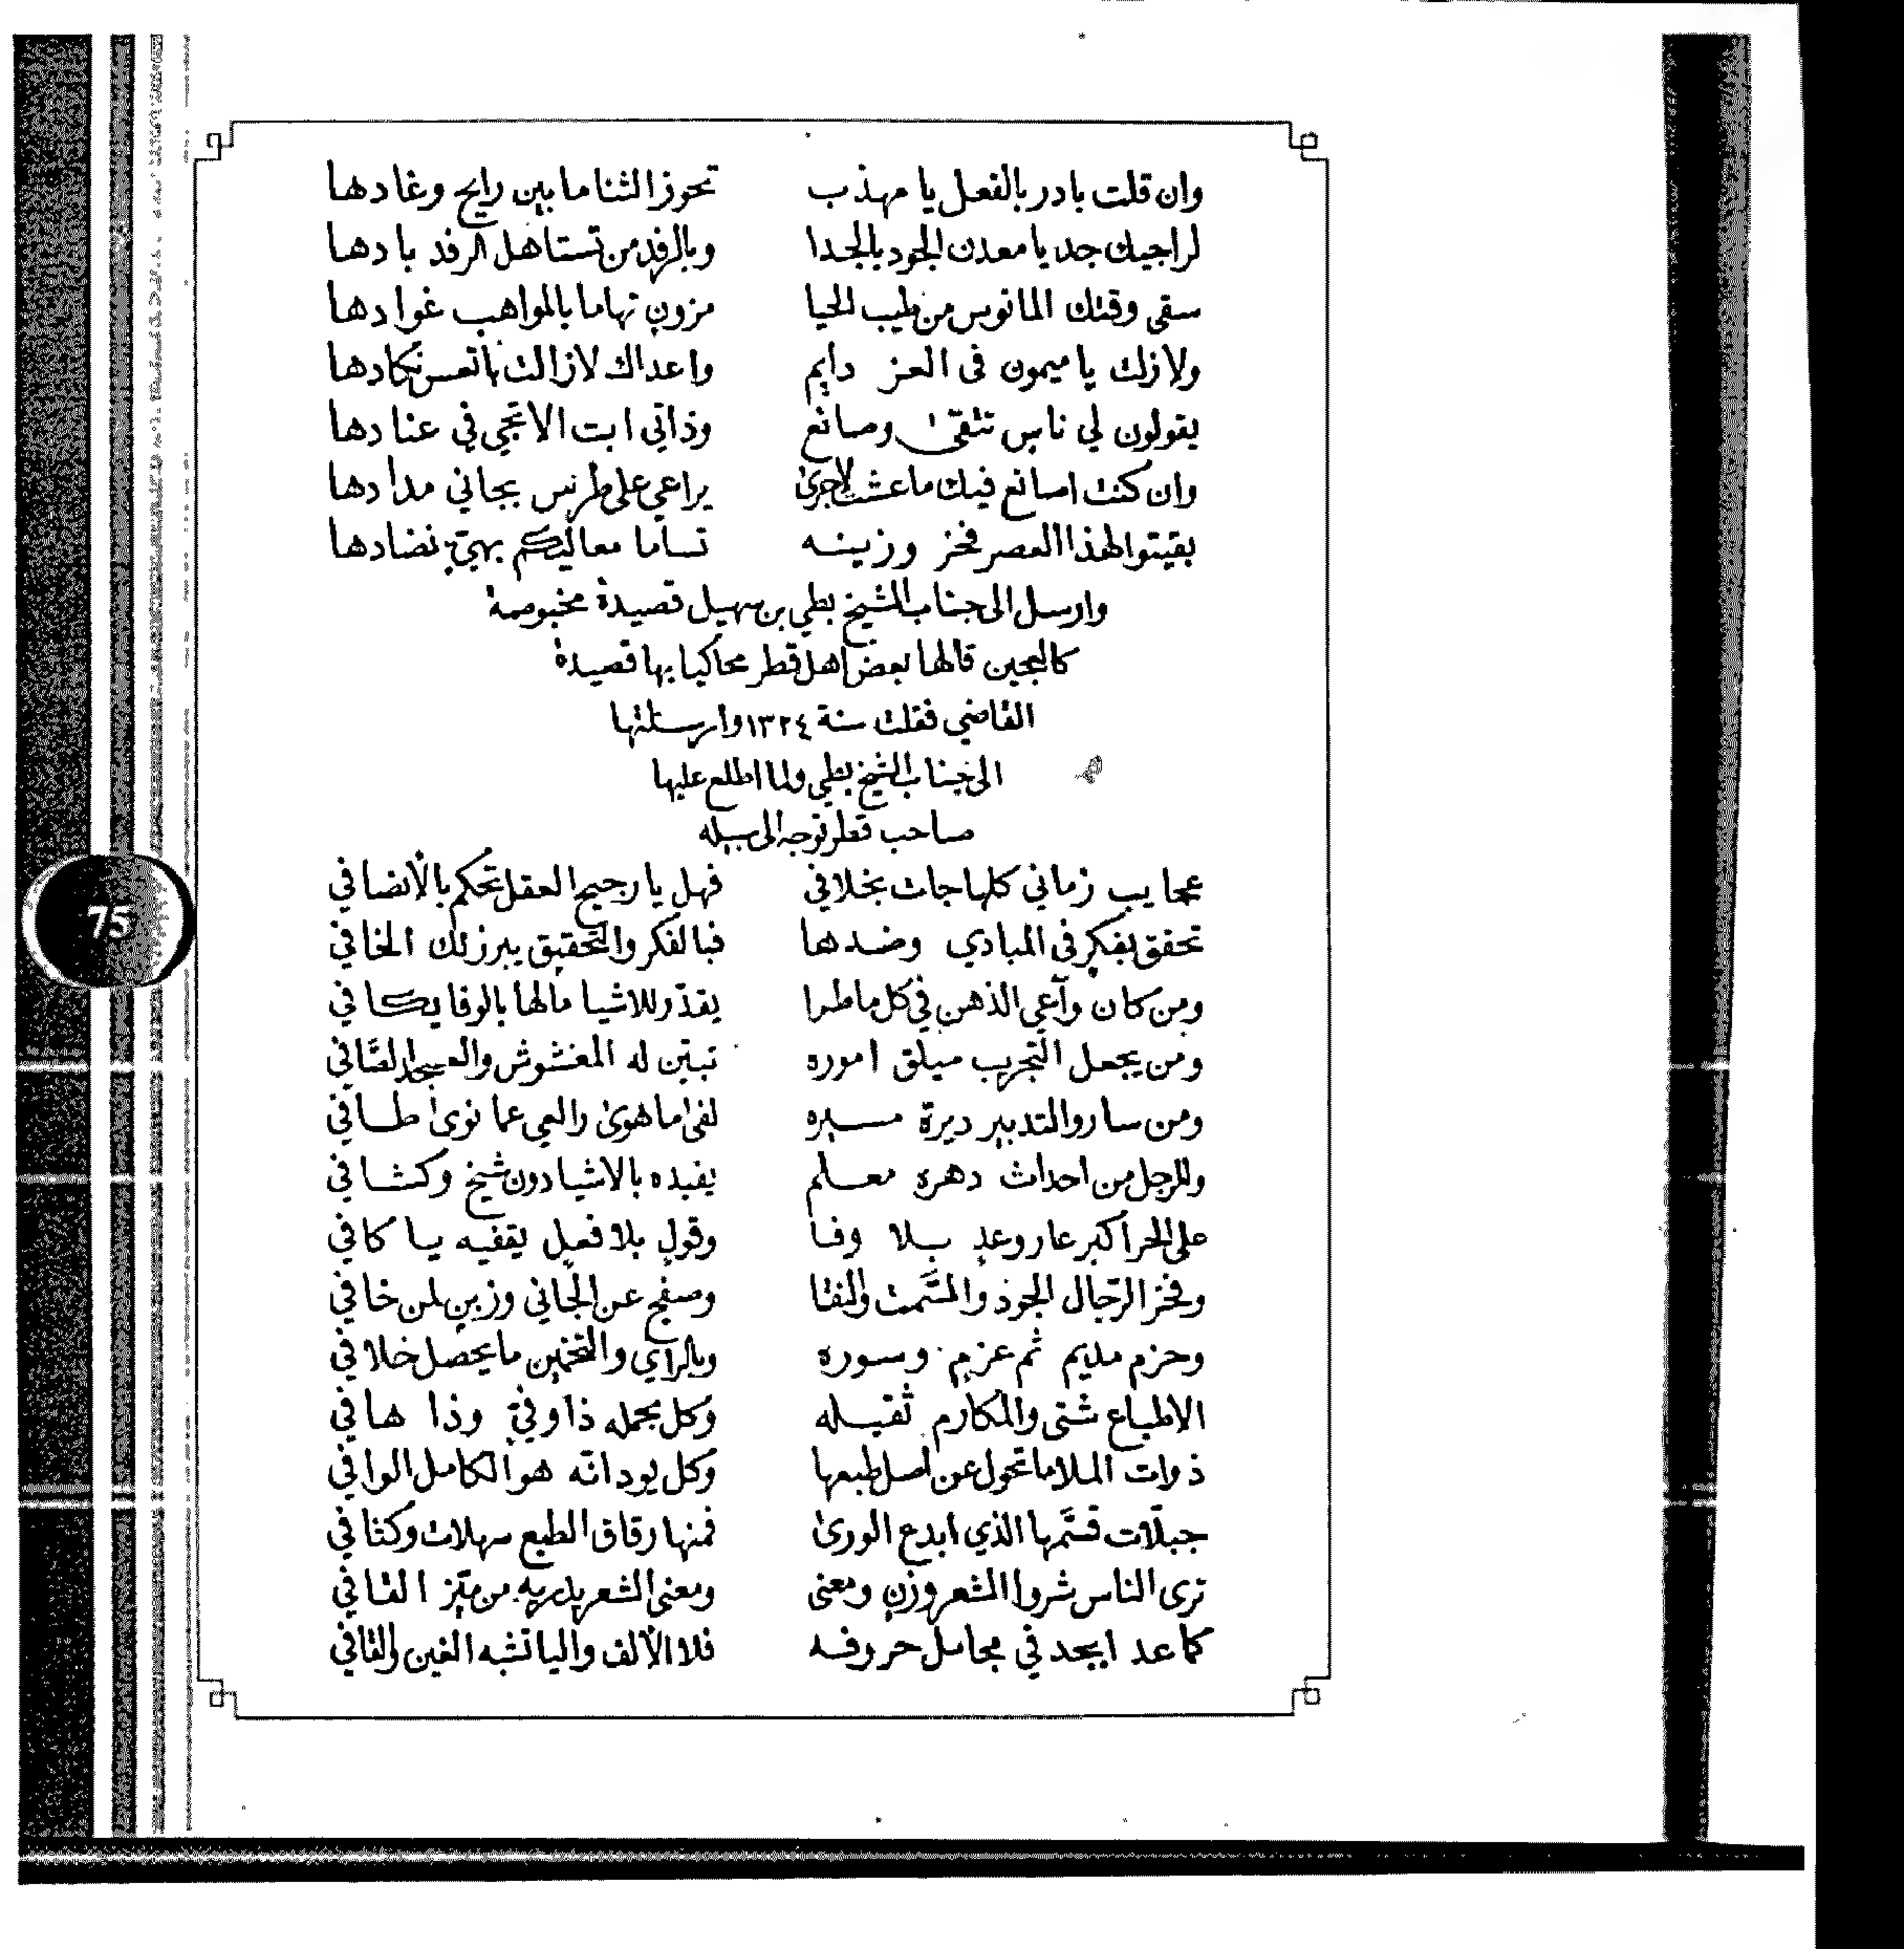 وان قلت بادر بالفعل يا مهذب تحوز الثنا ما بين رايح وغادها
لراجيك جد يا معدن الجود بالجدا وبالرفد من تستاهل الرفد بادها
سقى وقتك المانوس من طيب الحيا مزون تهاما بالمواهب غوادها
ولا زلت يا ميمون في العز دايم واعداك لا زالت باتعس نكادها
يقولون لي ناس تتقى وصانع وذاتي ابت الا تجي في عنادها
وان كنت اصانع فيك ما عشت لاجرى يراعي على طرس بجاني مدادها
بقيتوا لهذا العصر فخر وزينه تساما معاليكم بهيّ نضادها
وارسل الى جناب الشيخ بطي بن سهيل قصيدة مخبوصة
كالعجين قالها بعض اهل قطر محاكيا بها قصيدة
القاضي فقلت سنة ١٣٢٤ وارسلتها
الى جناب الشيخ بطي ولما اطلع عليها
صاحب قطر توجه الى سبيله
عجايب زماني كلها جات بخلافي فهل يا رجيح العقل تحكم بالأنصافي
تحقق بفكر في المبادي وضدها فبالفكر والتحقيق يبرز لك الخافي
ومن كان وآعي الذهن في كل ما طرا يقدّر للاشيا مالها بالوفا يكافي
ومن يجعل التجريب ميلق اموره تبيّن له المغشوش والعسجد الصّافي
ومن سار والتدبير ديرة مسيره لفى ما هوى والعي عما نوى طافي
وللرجل من احداث دهره معلم يفيده بالاشيا دون شيخ وكشافي
على الحر اكبر عار وعدٍ بلا وفا وقولٍ بلا فعلٍ يقفيه يا كافي
وفخر الرّجال الجود والسَّمت والنقا وصفح عن الجاني وزبنٍ لمن خافي
وحزم مديم ثم عزم وسوره وبالراي والتخمين ما يحصل خلافي
الاطباع شتى والمكارم ثقيله وكل بحمله ذا وفيّ وذا هافي
ذوات الملا ما تحول عن اصل طبعها وكل يود انّه هو الكامل الوافي
جبلّات قسَّمها الذي ابدع الورى فمنها رقاق الطبع سهلات وكثافي
ترى الناس شروا الشعر وزن ومعنى ومعنى الشعر يدريه من ميّز القافي
كما عد ابجد في مجامل حروفه فلا الألف واليا تشبه الغين والقافي
75